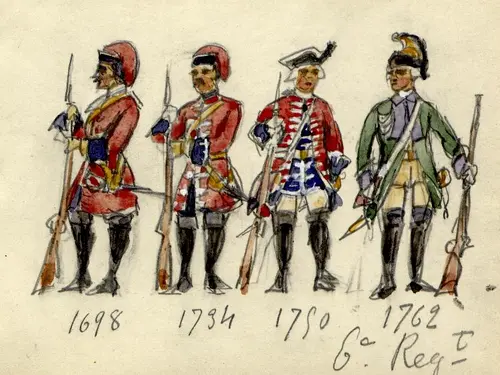 1698 1734 1750 1762
6a. Regt